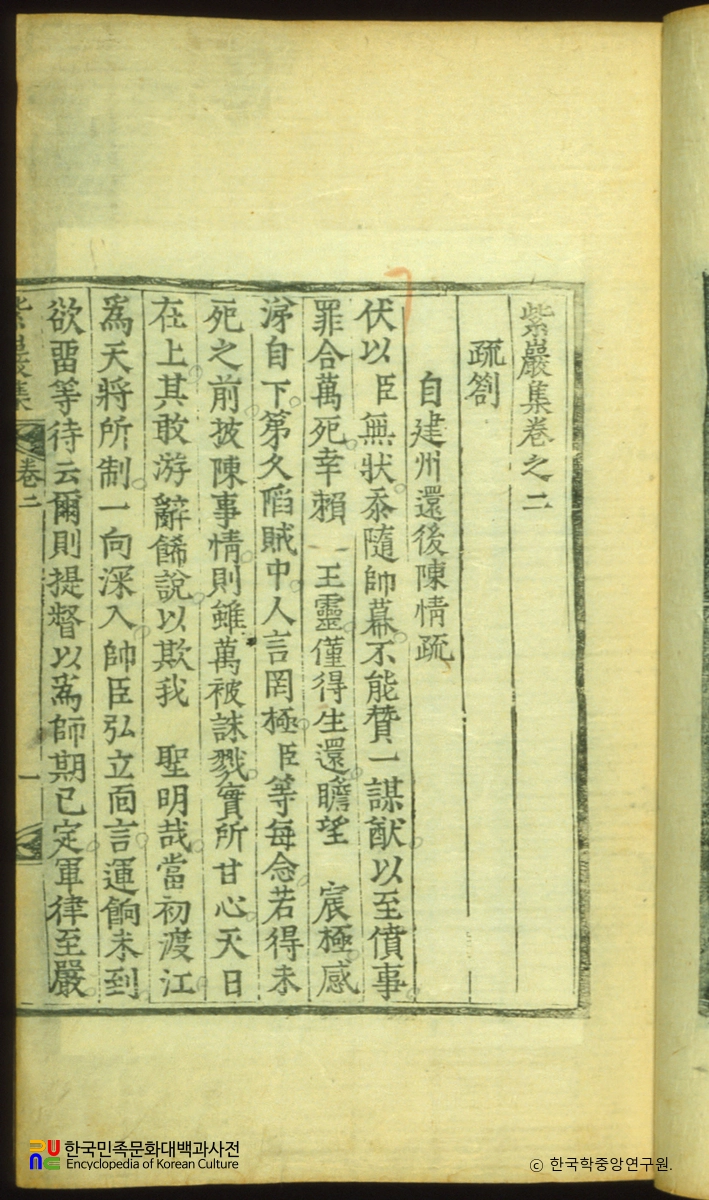 紫巖集卷之二
疏箚
自建州還後陳情疏
伏以臣無狀忝隨帥幕不能贊一謀猷以至僨事
罪合萬死幸賴 王靈僅得生還瞻望 宸極感
涕自下第久陷賊中人言罔極臣等每念若得未
死之前披陳事情則雖萬被誅戮實所甘心天日
在上其敢游辭餙說以欺我 聖明哉當初渡江
爲天將所制一向深入帥臣弘立面言運餉未到
欲留等待云爾則提督以爲師期已定軍律至嚴
紫巖集 卷二 一
한국민족문화대백과사전
Encyclopedia of Korean Culture
ⓒ 한국학중앙연구원.